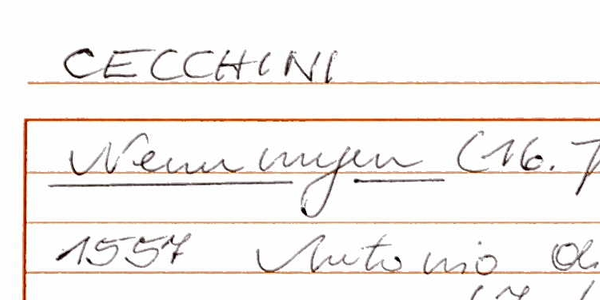 CECCHINI
Nennungen (16.
1557 Antonio